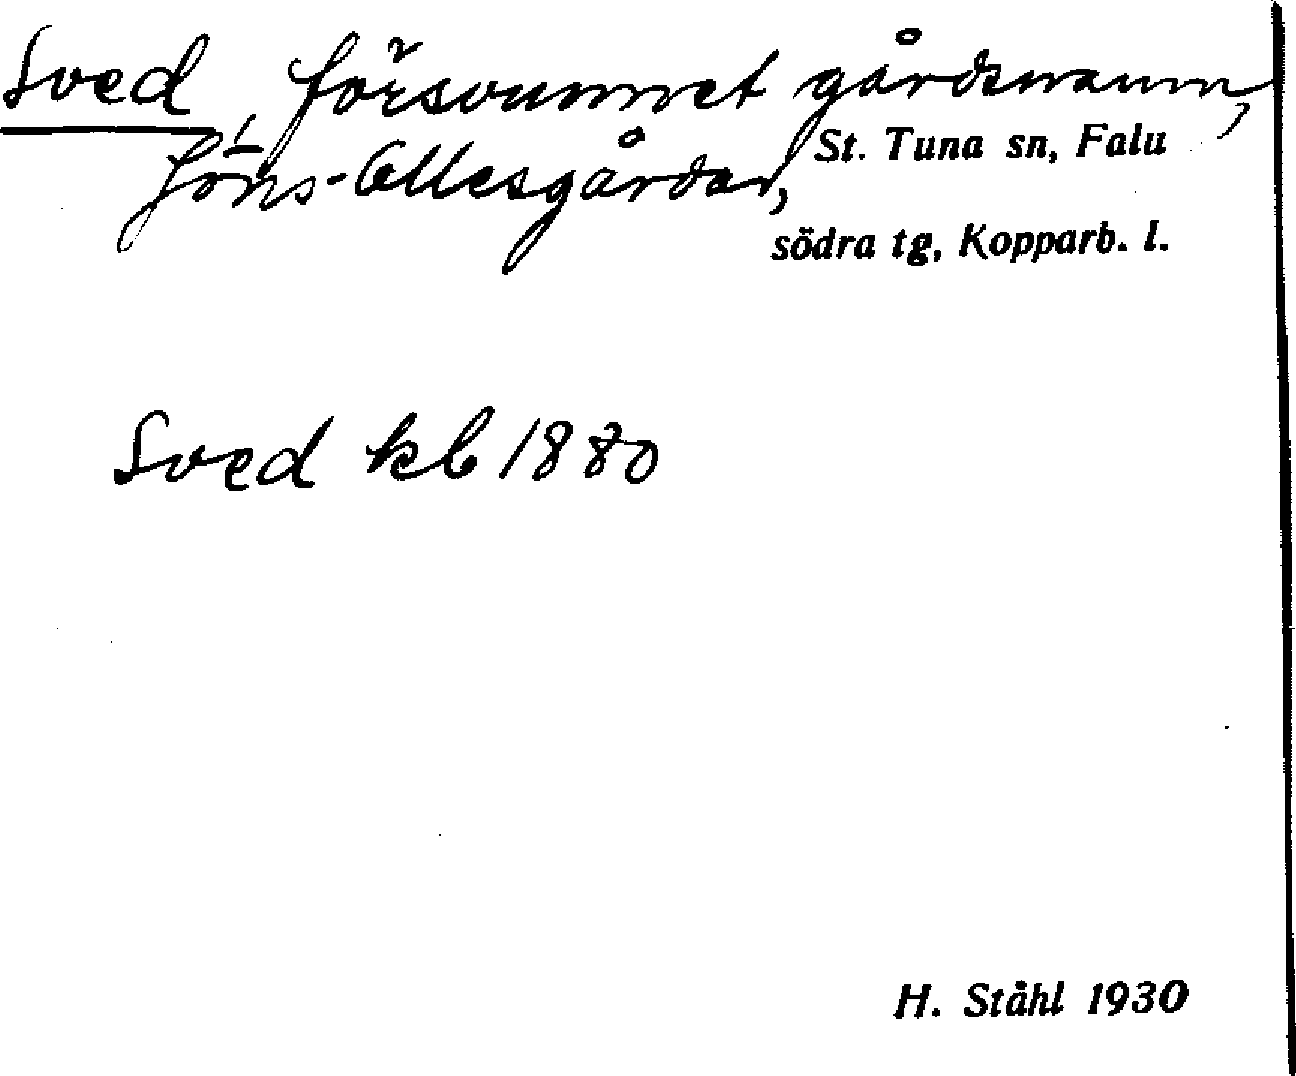 Sved, försvunnet gårdsnamn,
Jöns-Ollesgårdar, St. Tuna sn, Falu
södra tg, Kopparb. l.
Sved kb 1880
H. Ståhl 1930